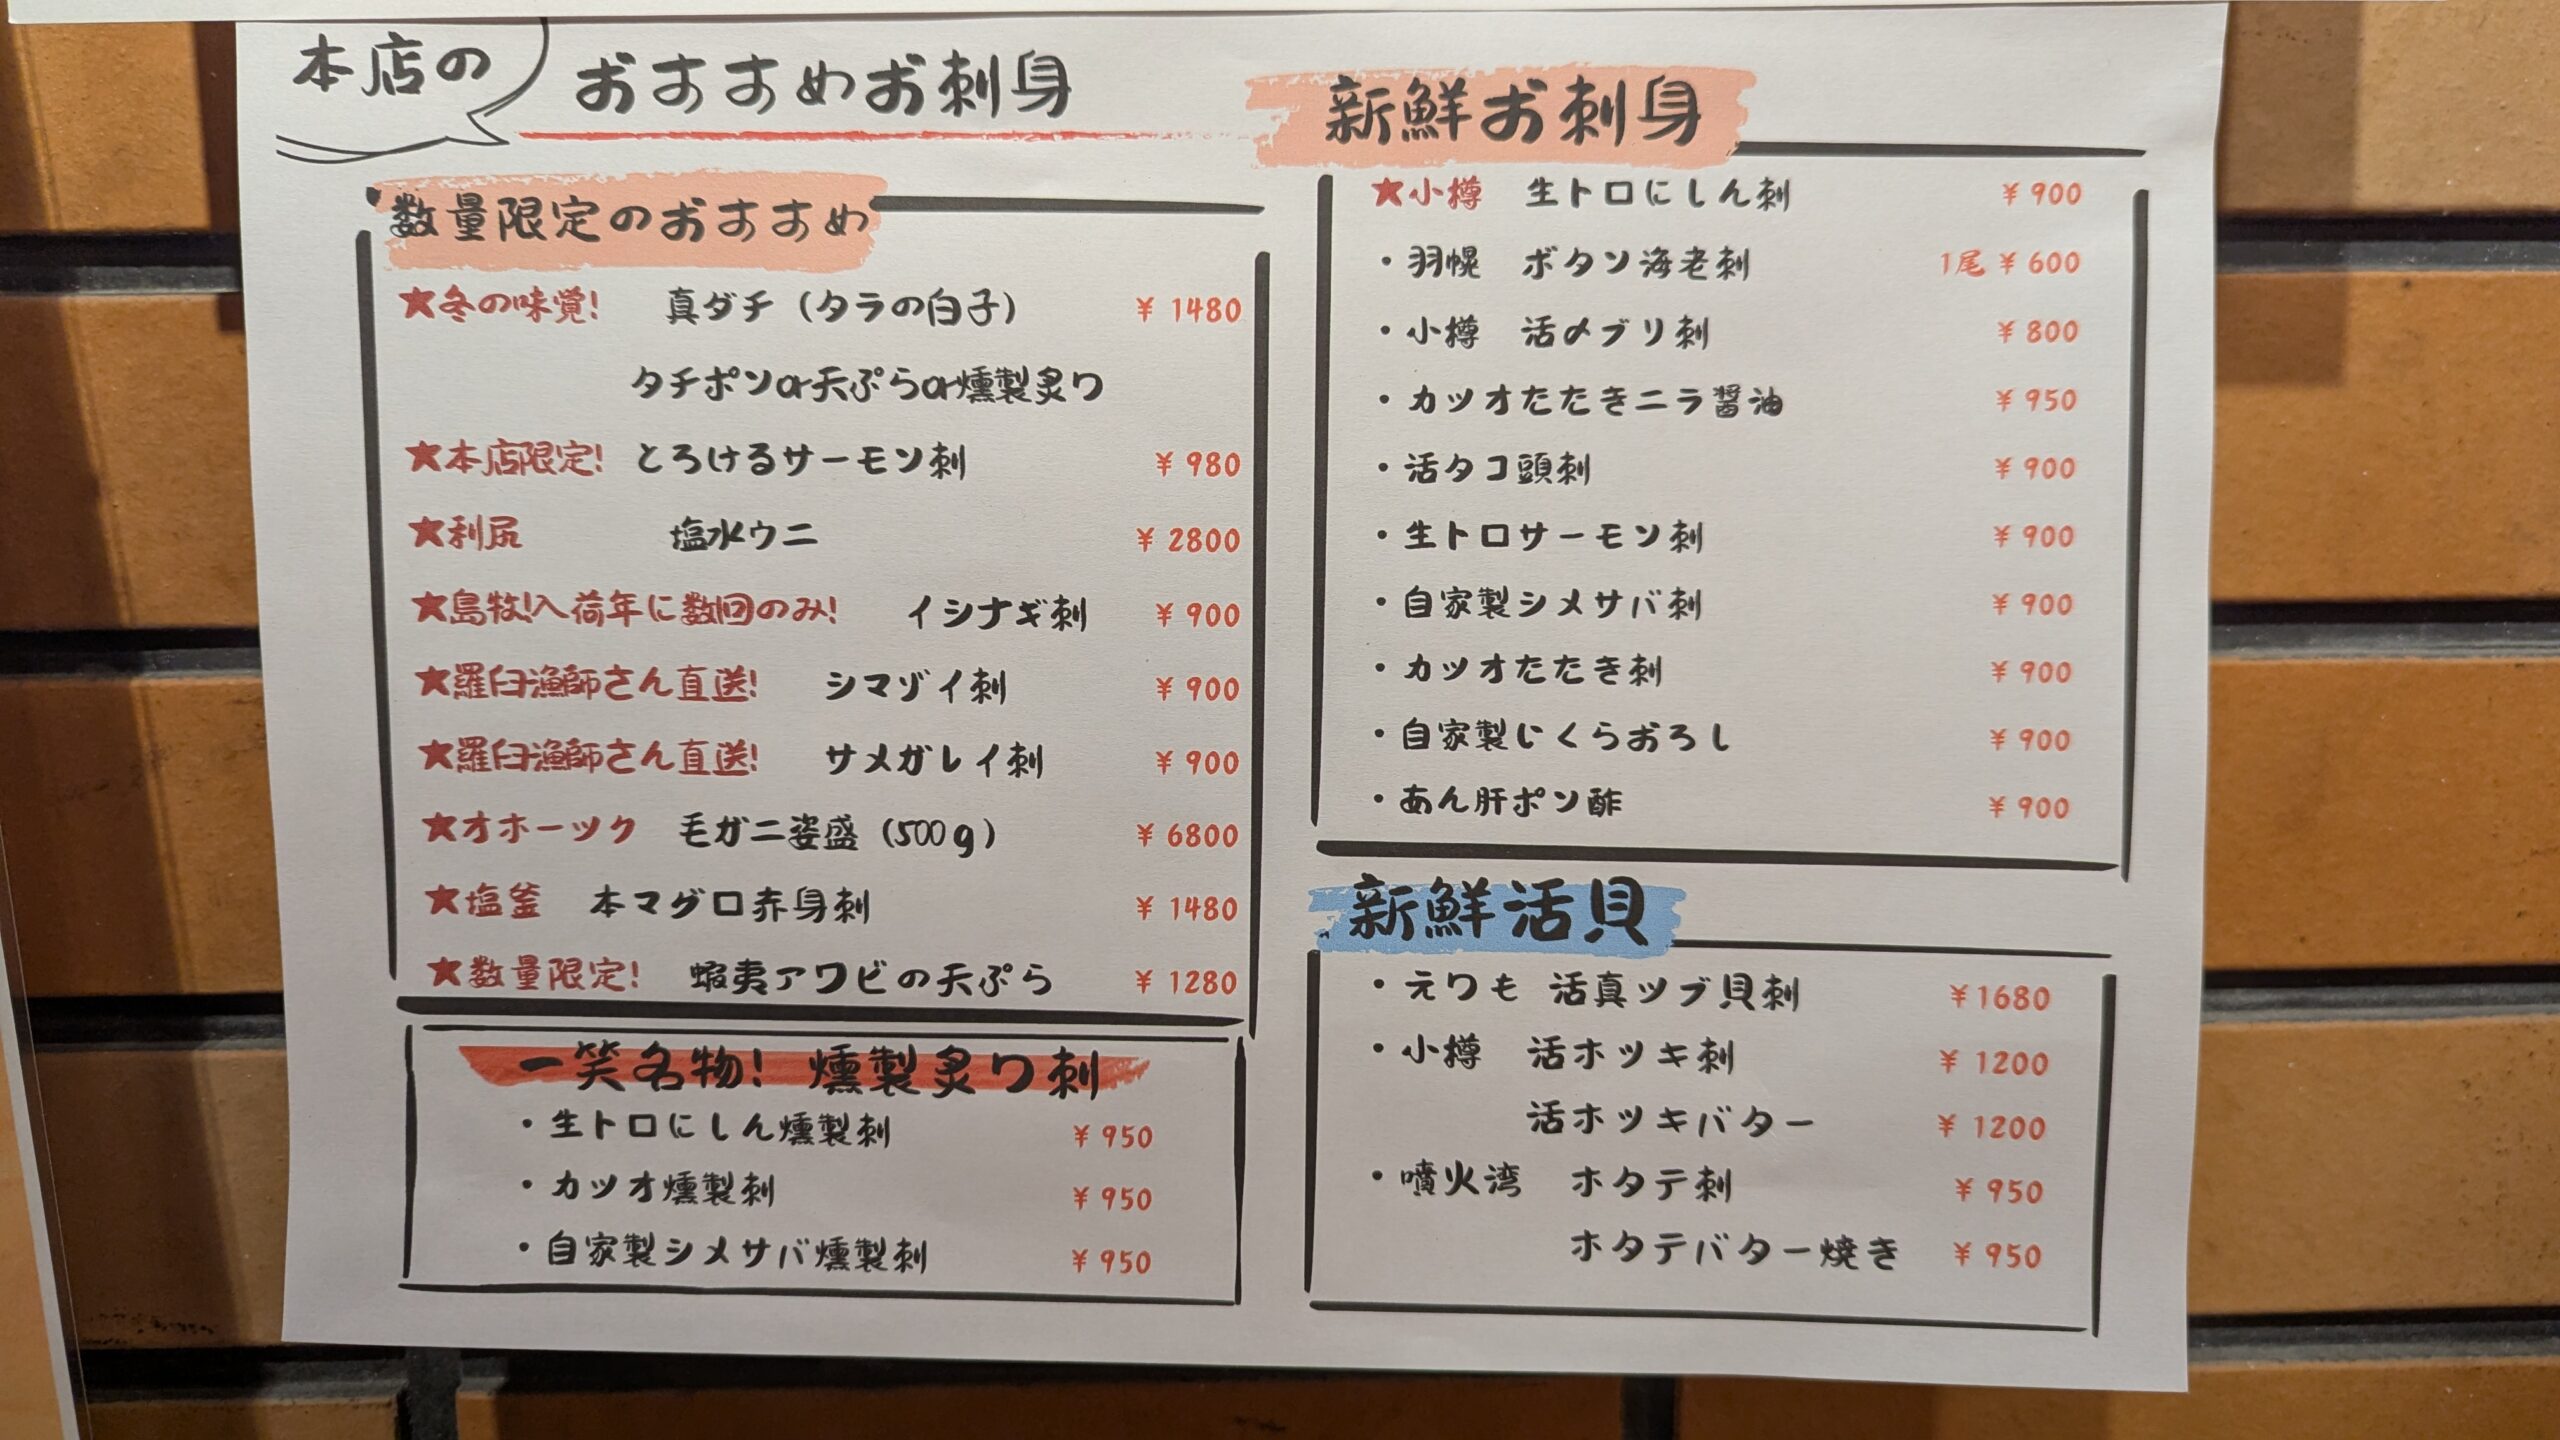 本店の おすすめお刺身
数量限定のおすすめ
★冬の味覚! 真ダチ（タラの白子） ¥ 1480
タチポンor天ぷらor燻製炙り
★本店限定! とろけるサーモン刺 ¥ 980
★利尻 塩水ウニ ¥ 2800
★島牧!入荷年に数回のみ! イシナギ刺 ¥ 900
★羅臼漁師さん直送! シマゾイ刺 ¥ 900
★羅臼漁師さん直送! サメガレイ刺 ¥ 900
★オホーツク 毛ガニ姿盛（500g） ¥ 6800
★塩釜 本マグロ赤身刺 ¥ 1480
★数量限定! 蝦夷アワビの天ぷら ¥ 1280
一笑名物! 燻製炙り刺
・生トロにしん燻製刺 ¥ 950
・カツオ燻製刺 ¥ 950
・自家製シメサバ燻製刺 ¥ 950
新鮮お刺身
★小樽 生トロにしん刺 ¥ 900
・羽幌 ボタン海老刺 1尾 ¥ 600
・小樽 活〆ブリ刺 ¥ 800
・カツオたたきニラ醤油 ¥ 950
・活タコ頭刺 ¥ 900
・生トロサーモン刺 ¥ 900
・自家製シメサバ刺 ¥ 900
・カツオたたき刺 ¥ 900
・自家製いくらおろし ¥ 900
・あん肝ポン酢 ¥ 900
新鮮活貝
・えりも 活真ツブ貝刺 ¥1680
・小樽 活ホッキ刺 ¥ 1200
活ホッキバター ¥ 1200
・噴火湾 ホタテ刺 ¥ 950
ホタテバター焼き ¥ 950